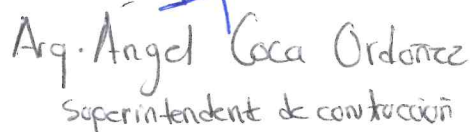 Arq. Ángel Coca Ordoñez
Superintendent de contruccioñ